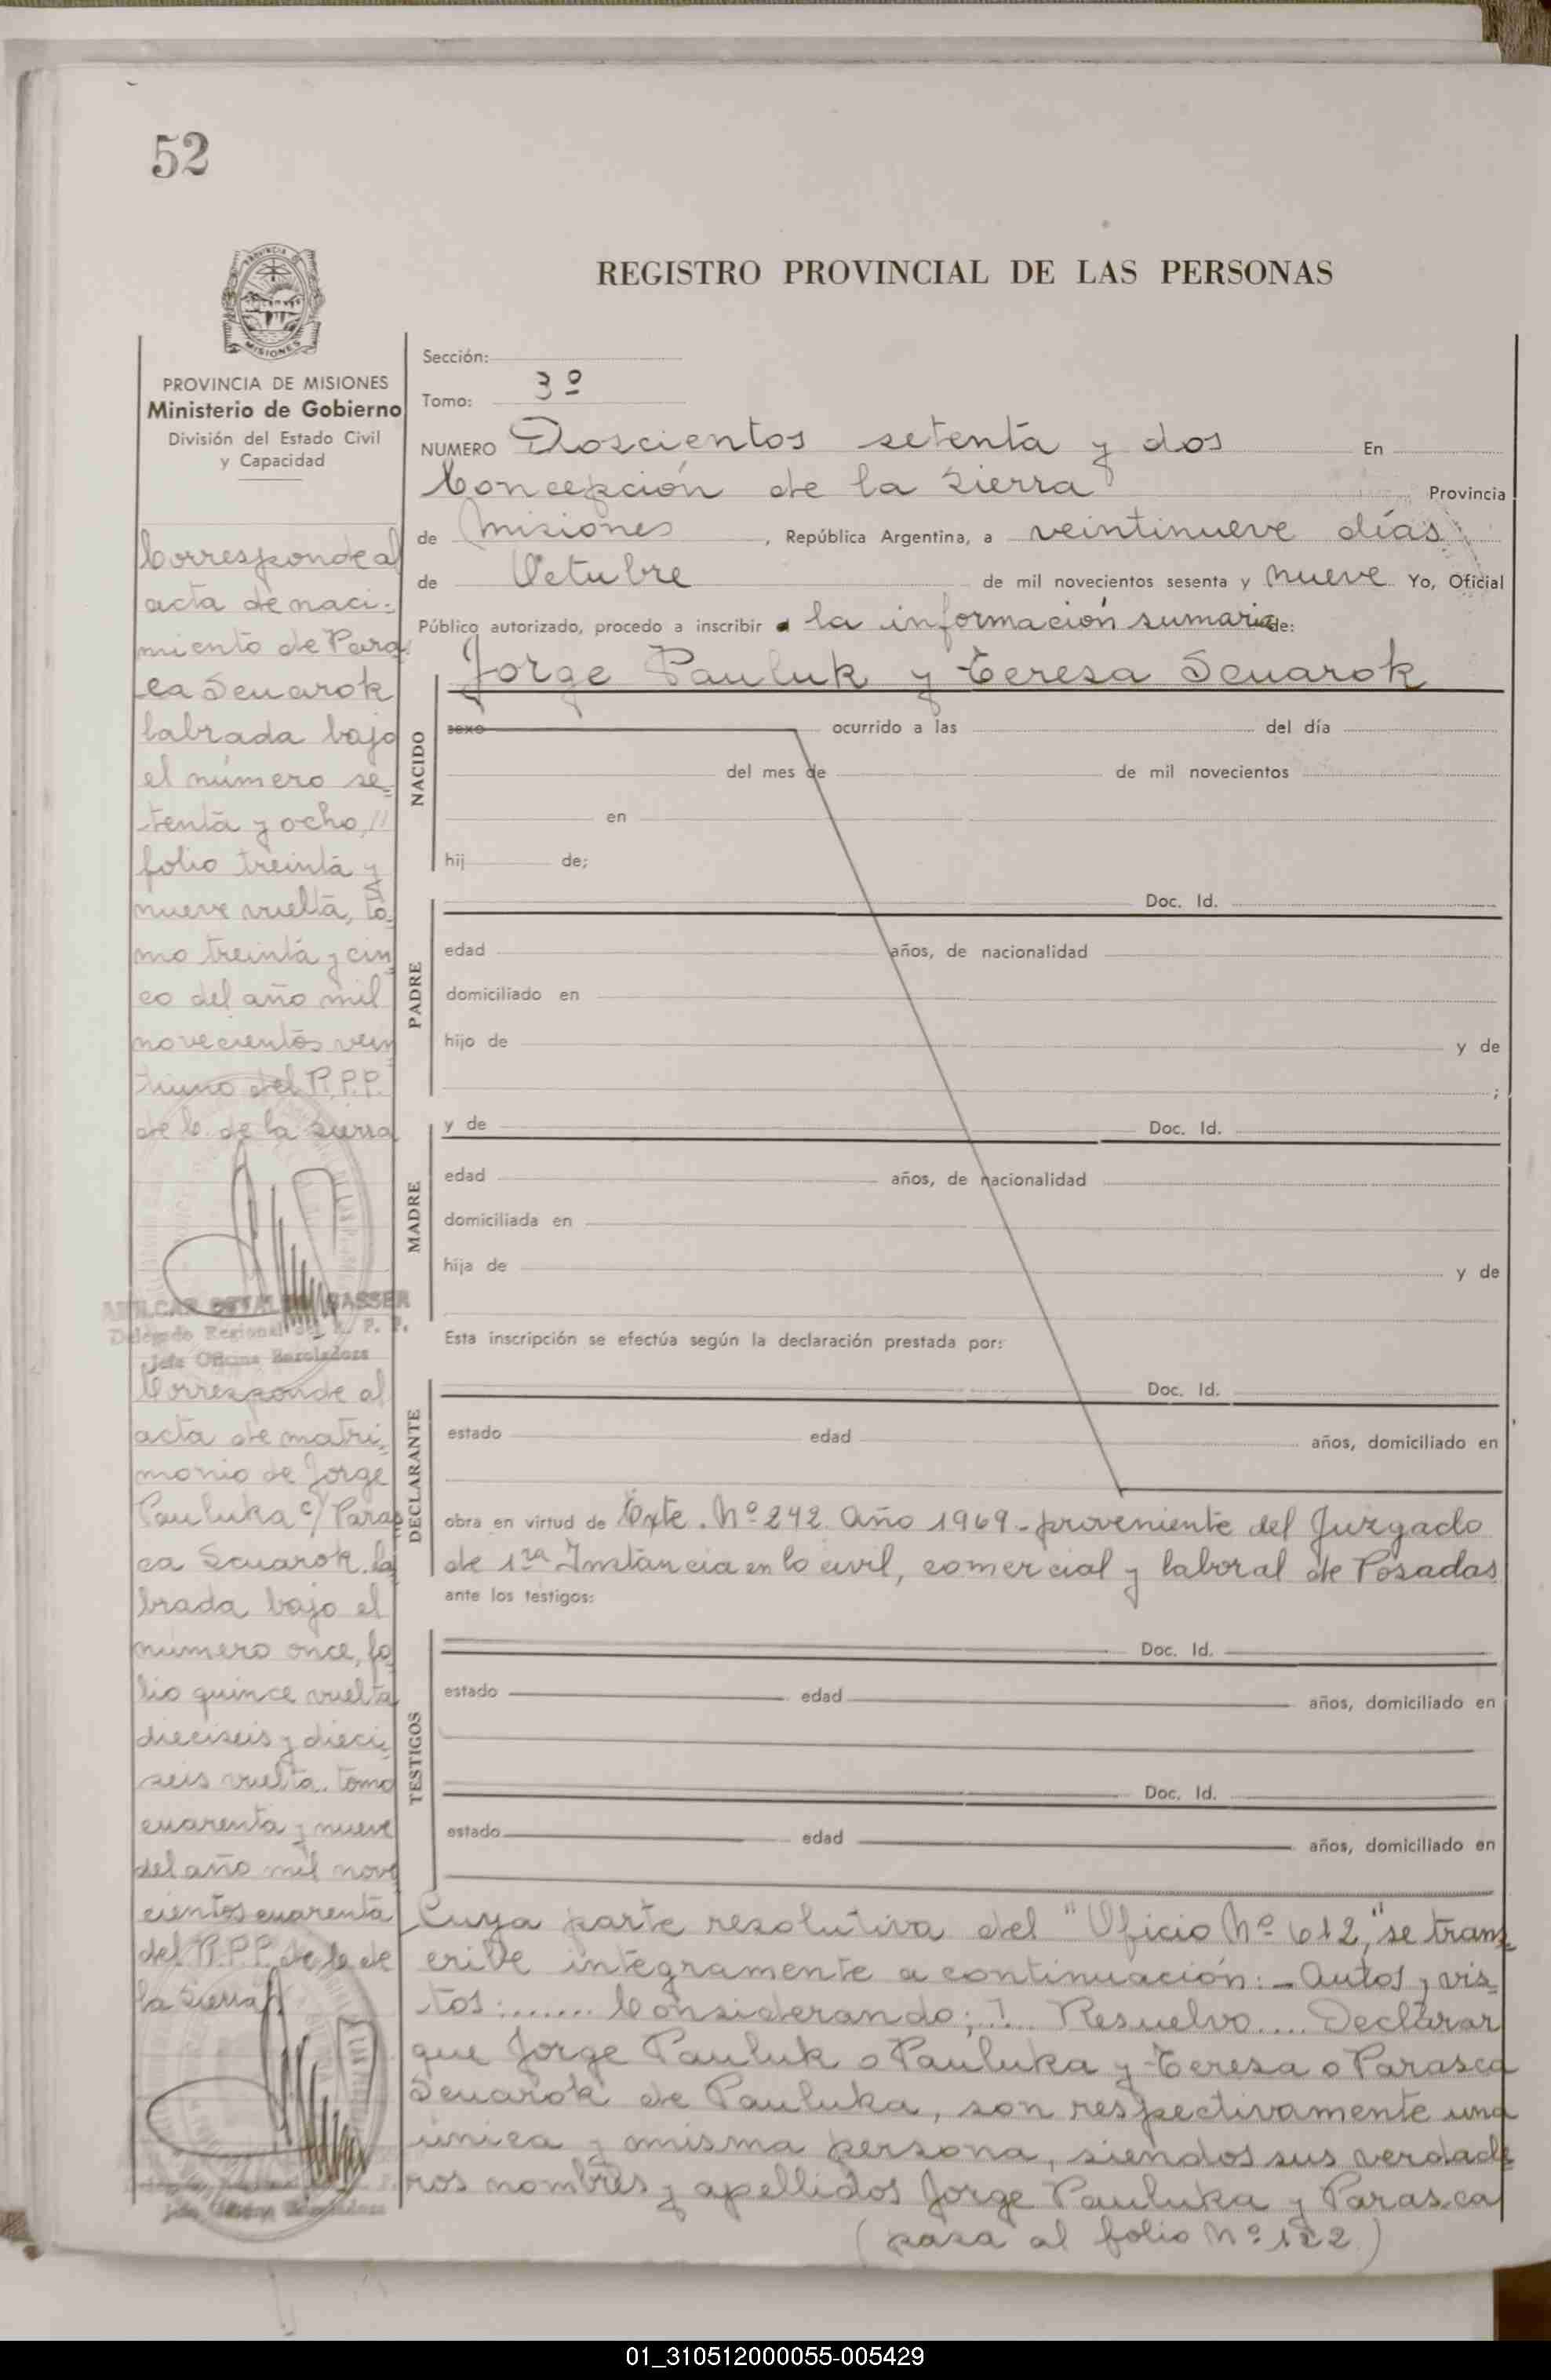 52
MISIONES
PROVINCIA DE MISIONES
Ministerio de Gobierno
División del Estado Civil
y Capacidad
REGISTRO PROVINCIAL DE LAS PERSONAS
Sección:
Tomo: 3º
NUMERO Doscientos setenta y dos En
Concepción de la Sierra Provincia
de Misiones, República Argentina, a veintinueve días
de Octubre de mil novecientos sesenta y nueve Yo, Oficial
Público autorizado, procedo a inscribir a la información sumaria de:
Jorge Pauluk y Teresa Scuarok
NACIDO
sexo ocurrido a las del día
del mes de de mil novecientos
en
hij de;
PADRE
Doc. Id.
edad años, de nacionalidad
domiciliado en
hijo de y de
;
MADRE
y de Doc. Id.
edad años, de nacionalidad
domiciliada en
hija de y de
Esta inscripción se efectúa según la declaración prestada por:
DECLARANTE
Doc. Id.
estado edad años, domiciliado en
obra en virtud de Exte. Nº 242. Año 1969 - proveniente del Juzgado
de 1ra Instancia en lo civil, comercial y laboral de Posadas
ante los testigos:
TESTIGOS
Doc. Id.
estado edad años, domiciliado en
Doc. Id.
estado edad años, domiciliado en
Cuya parte resolutiva del "Oficio Nº 612," se trans-
cribe integramente a continuación: - Autos y vis-
tos: ....... Considerando; ... Resuelvo .... Declarar
que Jorge Pauluk o Pauluka y Teresa o Parasca
Scuarok de Pauluka, son respectivamente una
única y misma persona, siendos sus verdade-
ros nombres y apellidos Jorge Pauluka y Parasca
(pasa al folio Nº 122)
Corresponde al
acta de naci-
miento de Paras
ca Scuarok
labrada bajo
el número se-
tenta y ocho, //
folio treinta y
nueve vuelta, to-
mo treinta y cin
co del año mil
novecientos vein
tiuno del R.P.P.
de C. de la Sierra
GASSER
Delegado Regional del R. P. P.
Jefe Oficina
Corresponde al
acta de matri-
monio de Jorge
Pauluka c/ Paras
ca Scuarok. la
brada bajo el
número once, fo
lio quince vuelta
dieciseis y dieci-
seis vuelta. tomo
cuarenta y nueve
del año mil nove
cientos cuarenta
del R.P.P. de C. de
la Sierra
01_310512000055-005429